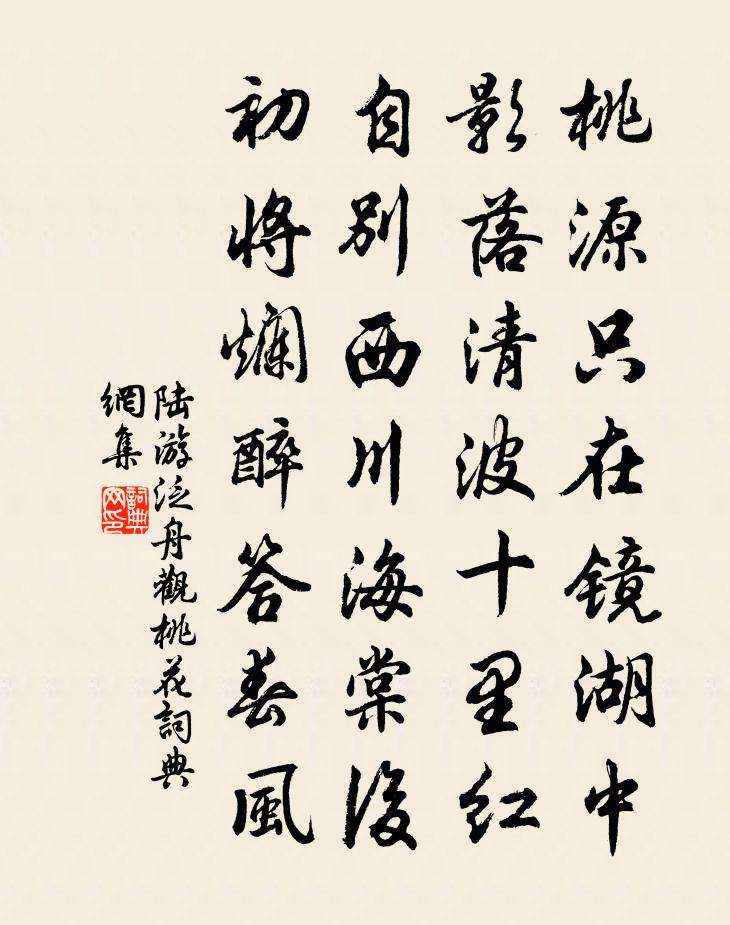 桃源只在镜湖中
影落清波十里红
自别西川海棠後
初将爛醉答春風
陆游泛舟觀桃花詞典
網集
詞典网印